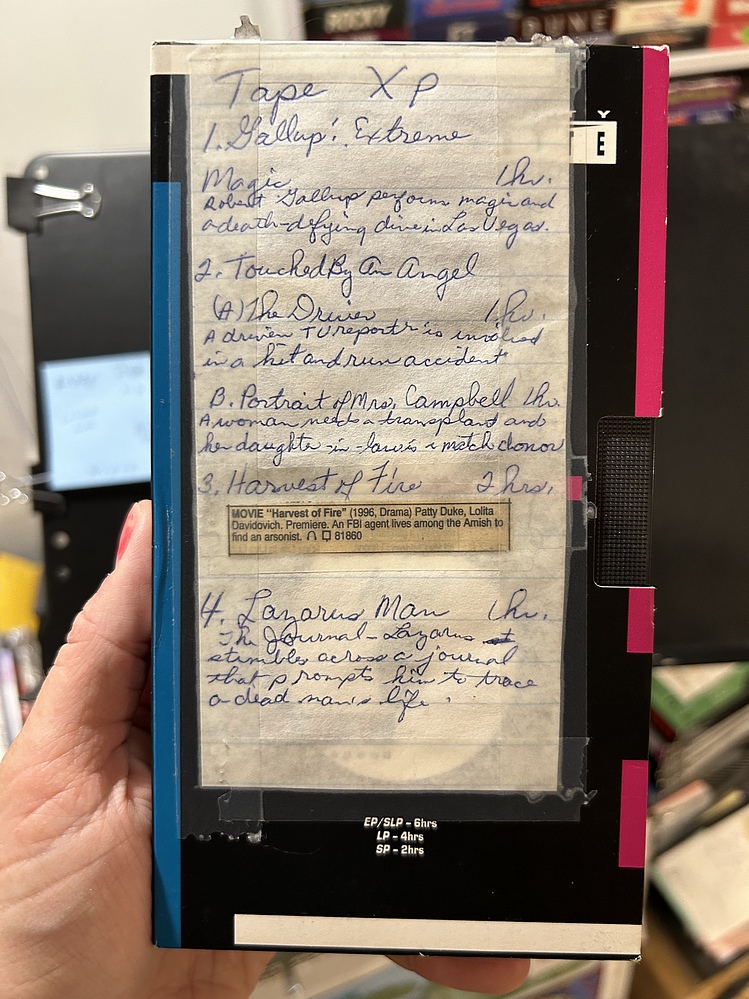 ROCKY
DUNE
Y
T E
Tape XP
1. Gallup: Extreme
Magic 1hr.
Robert Gallup perform magic and
a death-defying dive in Las Vegas.
2. Touched By An Angel
(A) The Driver 1hr.
A driven TV reporter is involved
in a hit and run accident
B. Portrait of Mrs. Campbell 1hr.
A woman needs a transplant and
her daughter-in-law is a match donor
3. Harvest of Fire 2 hrs.
MOVIE "Harvest of Fire" (1996, Drama) Patty Duke, Lolita
Davidovich. Premiere. An FBI agent lives among the Amish to
find an arsonist. 81860
4. Lazarus Man 1hr.
The Journal - Lazarus
stumbles across a journal
that prompts him to trace
a dead man's life.
EP/SLP - 6hrs
LP - 4hrs
SP - 2hrs